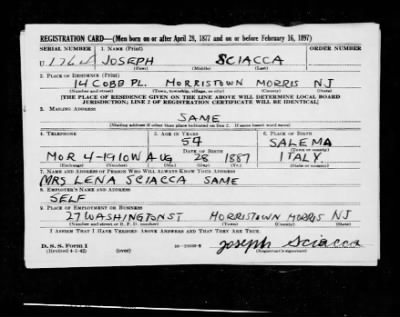 REGISTRATION CARD—(Men born on or after April 28, 1877 and on or before February 16, 1897)
SERIAL NUMBER 1. NAME (Print) ORDER NUMBER
U JOSEPH SCIACCA
(First) (Middle) (Last)
2. PLACE OF RESIDENCE (Print)
14 COBB PL. MORRISTOWN MORRIS NJ
(Number and street) (Town, township, village, or city) (County) (State)
[THE PLACE OF RESIDENCE GIVEN ON THE LINE ABOVE WILL DETERMINE LOCAL BOARD
JURISDICTION; LINE 2 OF REGISTRATION CERTIFICATE WILL BE IDENTICAL]
3. MAILING ADDRESS
SAME
(Mailing address if other than place indicated on line 2. If same insert word same)
4. TELEPHONE 5. AGE IN YEARS 6. PLACE OF BIRTH
54 SALEMA
DATE OF BIRTH (Town or county)
MOR 4-1910W AUG 28 1887 ITALY
(Exchange) (Number) (Mo.) (Day) (Yr.) (State or country)
7. NAME AND ADDRESS OF PERSON WHO WILL ALWAYS KNOW YOUR ADDRESS
MRS LENA SCIACCA SAME
8. EMPLOYER'S NAME AND ADDRESS
SELF
9. PLACE OF EMPLOYMENT OR BUSINESS
27 WASHINGTON ST MORRISTOWN MORRIS NJ
(Number and street or R. F. D. number) (Town) (County) (State)
I AFFIRM THAT I HAVE VERIFIED ABOVE ANSWERS AND THAT THEY ARE TRUE.
D. S. S. Form 1
(Revised 4-1-42) (over) Joseph Sciacca
(Registrant's signature)